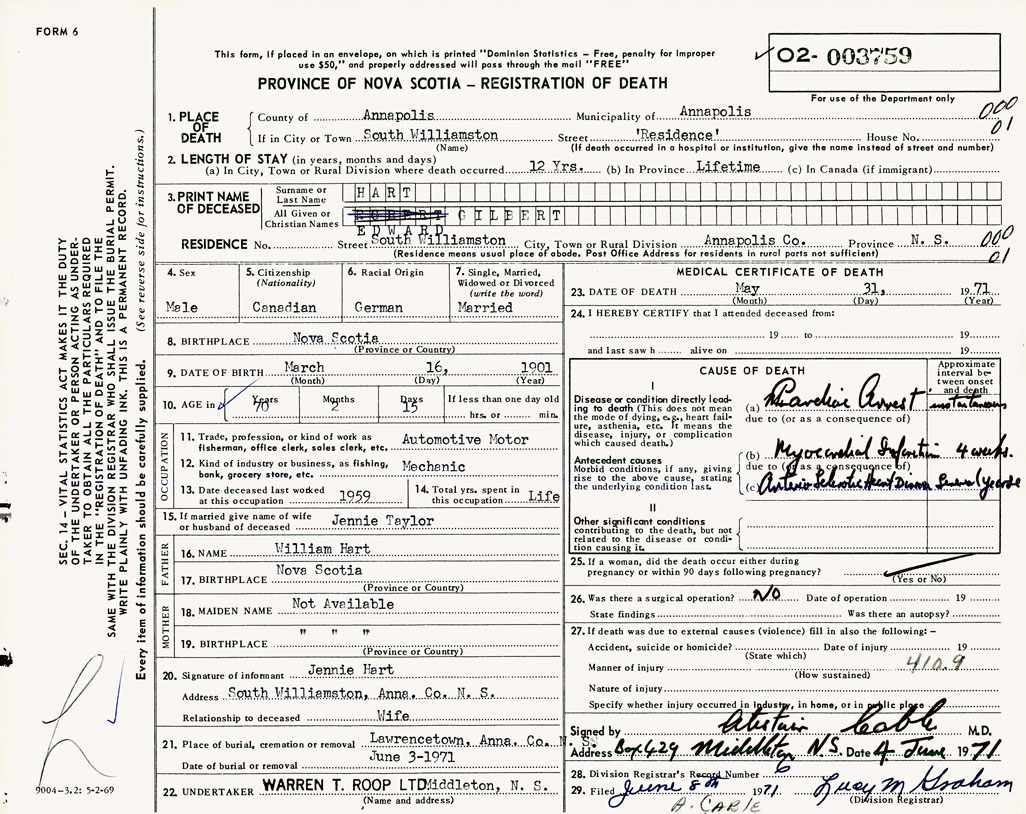 FORM 6
This form, if placed in an envelope, on which is printed "Dominion Statistics – Free, penalty for improper
use $50," and properly addressed will pass through the mail "FREE"
PROVINCE OF NOVA SCOTIA – REGISTRATION OF DEATH
02- 003759
For use of the Department only
1. PLACE OF DEATH
County of Annapolis Municipality of Annapolis
000
01
If in City or Town South Williamston Street 'Residence' House No.
(Name) (If death occurred in a hospital or institution, give the name instead of street and number)
2. LENGTH OF STAY (in years, months and days)
(a) In City, Town or Rural Division where death occurred 12 Yrs. (b) In Province Lifetime (c) In Canada (if immigrant)
3. PRINT NAME OF DECEASED
Surname or Last Name HART
All Given or Christian Names GILBERT
EDWARD
RESIDENCE No. Street South Williamston City, Town or Rural Division Annapolis Co. Province N. S.
000
01
(Residence means usual place of abode. Post Office Address for residents in rural parts not sufficient)
4. Sex
Male
5. Citizenship
(Nationality)
Canadian
6. Racial Origin
German
7. Single, Married,
Widowed or Divorced
(write the word)
Married
8. BIRTHPLACE Nova Scotia
(Province or Country)
9. DATE OF BIRTH March 16, 1901
(Month) (Day) (Year)
10. AGE in Years Months Days If less than one day old
70 2 15 hrs. or min.
OCCUPATION
11. Trade, profession, or kind of work as
fisherman, office clerk, sales clerk, etc. Automotive Motor
12. Kind of industry or business, as fishing,
bank, grocery store, etc. Mechanic
13. Date deceased last worked
at this occupation 1959
14. Total yrs. spent in
this occupation Life
15. If married give name of wife
or husband of deceased Jennie Taylor
FATHER
16. NAME William Hart
17. BIRTHPLACE Nova Scotia
(Province or Country)
MOTHER
18. MAIDEN NAME Not Available
19. BIRTHPLACE " " "
(Province or Country)
20. Signature of informant Jennie Hart
Address South Williamston, Anna. Co. N. S.
Relationship to deceased Wife
21. Place of burial, cremation or removal Lawrencetown, Anna. Co. N. S.
Date of burial or removal June 3-1971
22. UNDERTAKER WARREN T. ROOP LTD Middleton, N. S.
(Name and address)
MEDICAL CERTIFICATE OF DEATH
23. DATE OF DEATH May 31, 1971
(Month) (Day) (Year)
24. I HEREBY CERTIFY that I attended deceased from:
19 to 19
and last saw h alive on 19
CAUSE OF DEATH
Approximate
interval be-
tween onset
and death
I
Disease or condition directly lead-
ing to death (This does not mean
the mode of dying, e.g., heart fail-
ure, asthenia, etc. It means the
disease, injury, or complication
which caused death.)
(a) Cardiac Arrest instantaneous
due to (or as a consequence of)
Antecedent causes
Morbid conditions, if any, giving
rise to the above cause, stating
the underlying condition last.
(b) Myocardial Infarction 4 weeks.
due to (or as a consequence of)
(c) Arterio Sclerotic Heart Disease Several years
II
Other significant conditions
contributing to the death, but not
related to the disease or condi-
tion causing it.
25. If a woman, did the death occur either during
pregnancy or within 90 days following pregnancy?
(Yes or No)
26. Was there a surgical operation? NO Date of operation 19
State findings Was there an autopsy?
27. If death was due to external causes (violence) fill in also the following: –
Accident, suicide or homicide? Date of injury 19
(State which)
410.9
Manner of injury
(How sustained)
Nature of injury
Specify whether injury occurred in Industry, in home, or in public place
Signed by Alistair Cable M.D.
Address Box 429 Middleton N.S. Date 4 June 1971
28. Division Registrar's Record Number 6
29. Filed June 8th 1971 Lucy M Graham
(Division Registrar)
A. CABLE
SEC. 14 – VITAL STATISTICS ACT MAKES IT THE DUTY
OF THE UNDERTAKER OR PERSON ACTING AS UNDER-
TAKER TO OBTAIN ALL THE PARTICULARS REQUIRED
IN THE "REGISTRATION OF DEATH" AND TO FILE THE
SAME WITH THE DIVISION REGISTRAR WHO SHALL ISSUE THE BURIAL PERMIT.
WRITE PLAINLY WITH UNFADING INK. THIS IS A PERMANENT RECORD.
Every item of information should be carefully supplied. (See reverse side for instructions.)
9004-3.2: 5-2-69